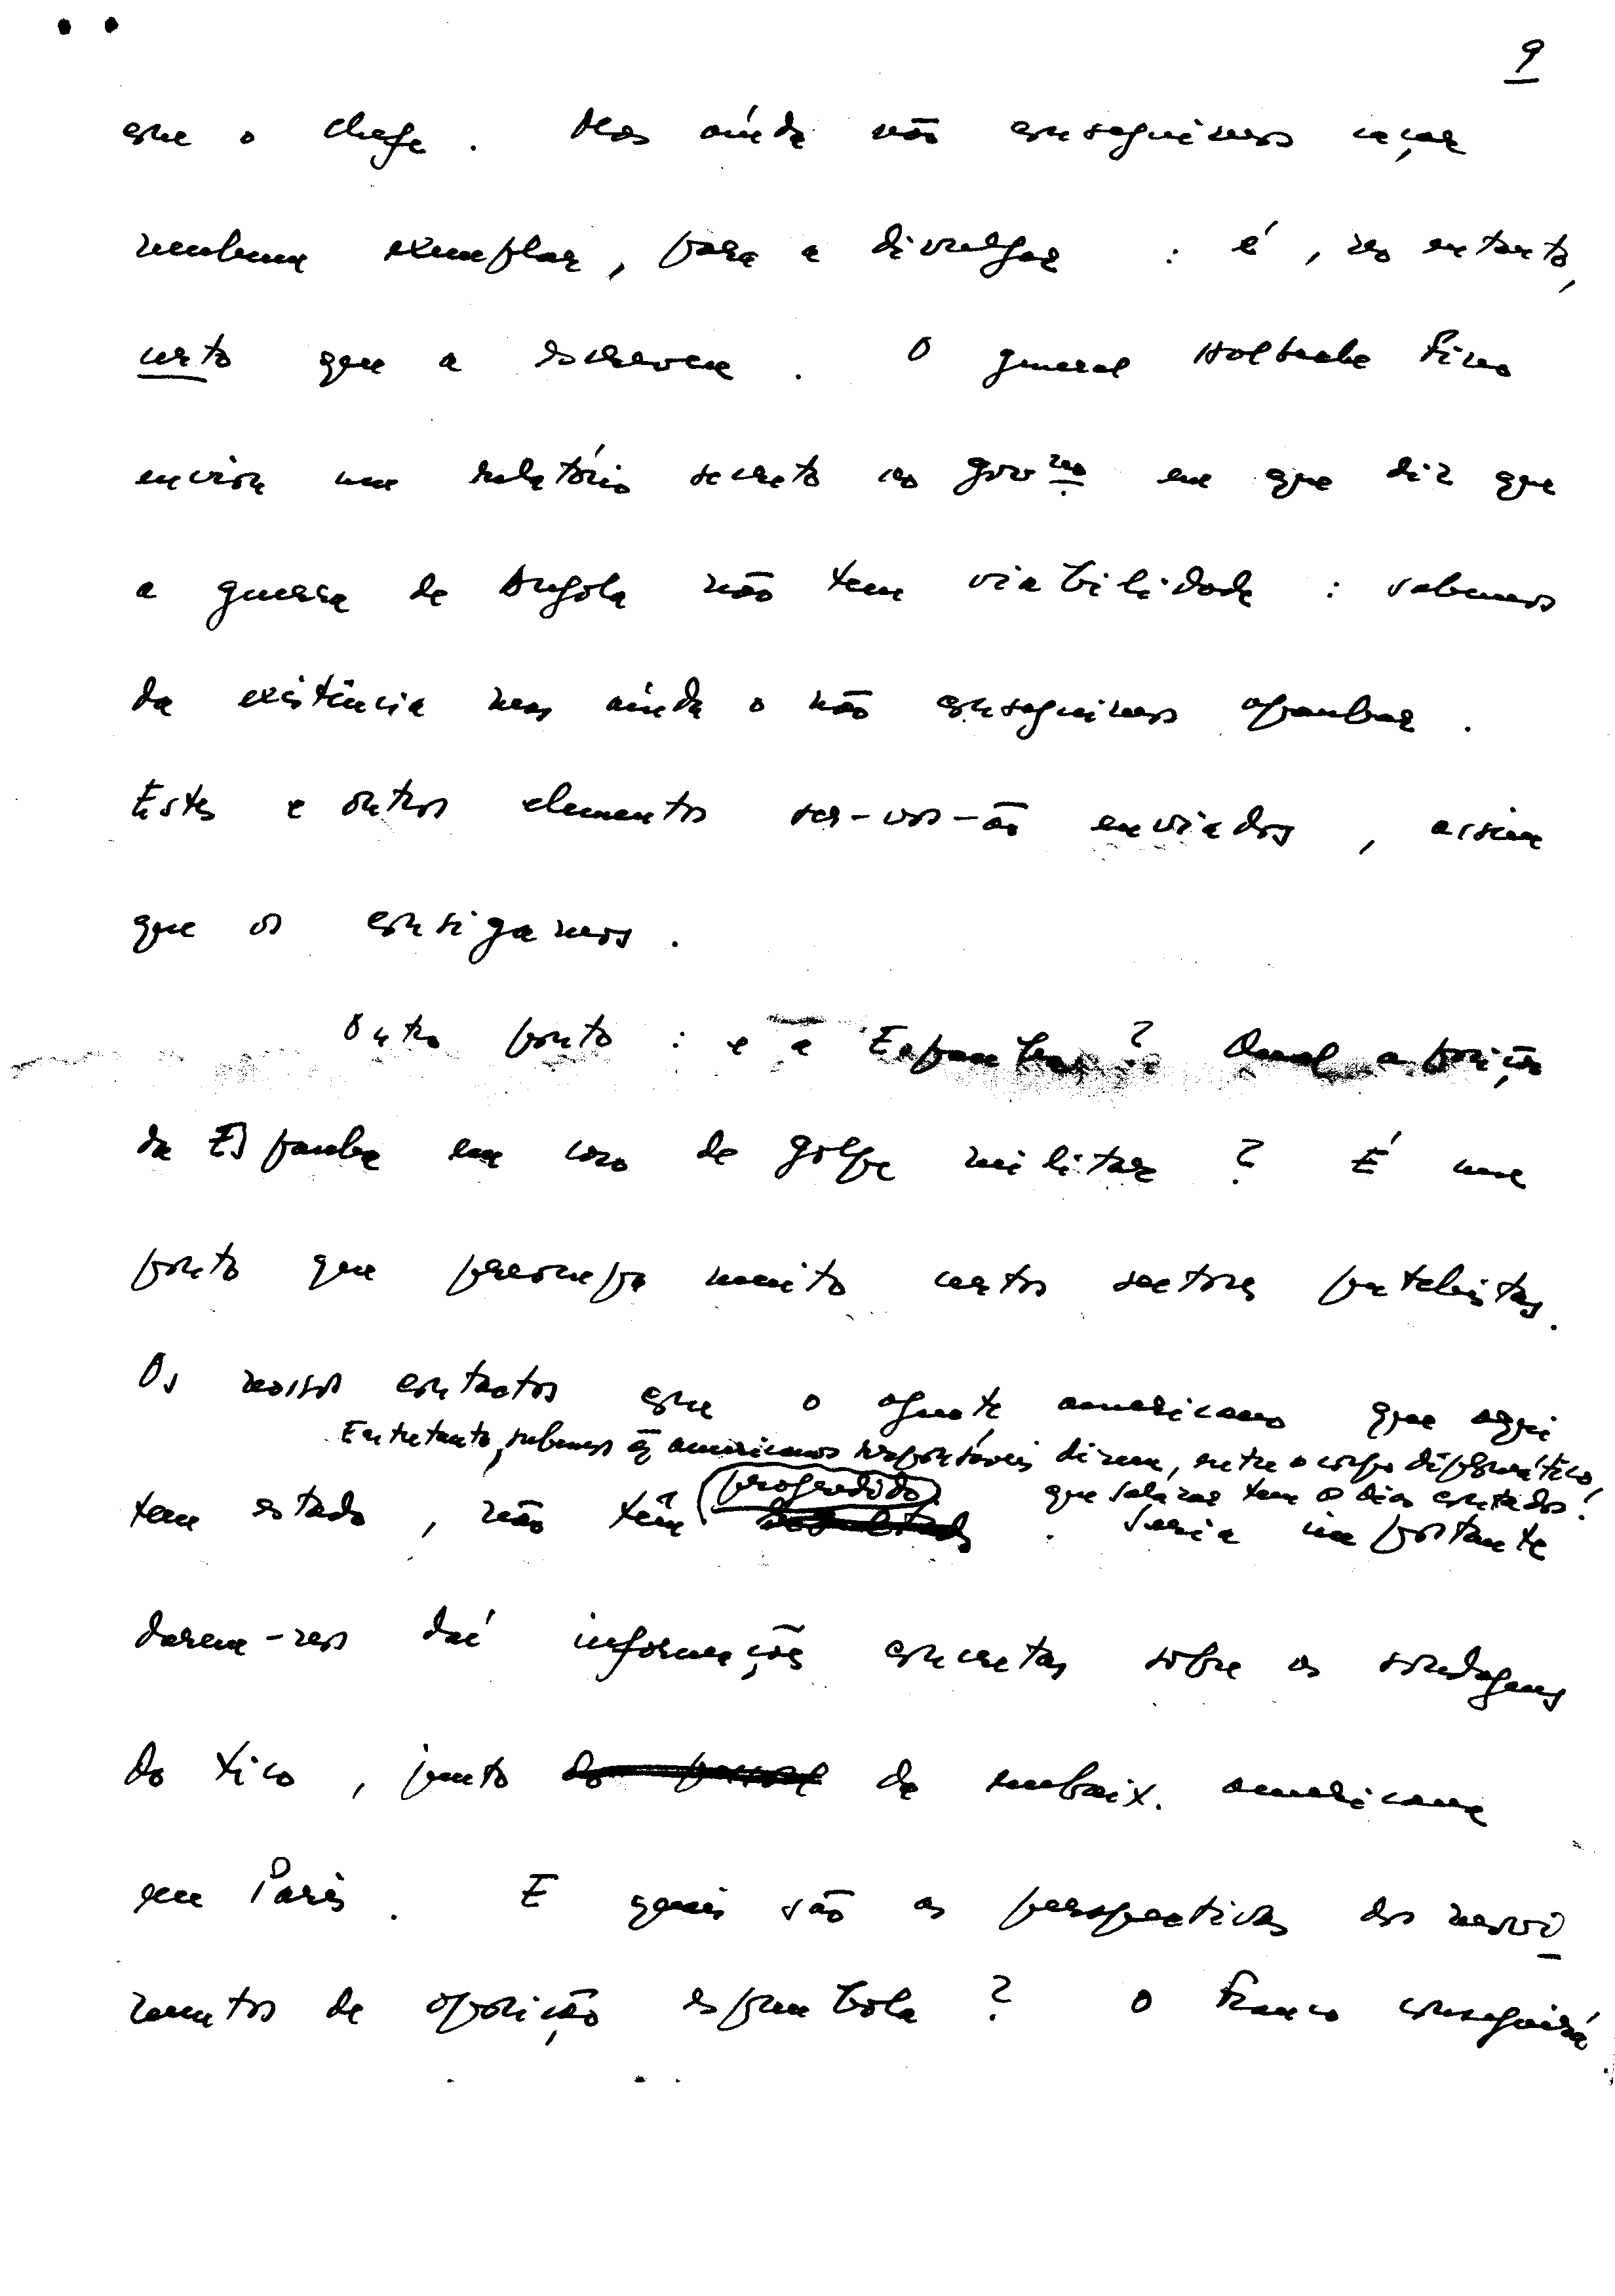 9
que o chefe. Mas aínda não conseguimos caçar
nenhum exemplar, para a divulgar : é, no entanto,
certo que a escreveu. O general Holbeche Fino
enviou um relatório secreto ao govno em que diz que
a guerra de Angola não tem viabilidade : sabemos
da existência mas aínda o não conseguimos apanhar.
Estes e outros elementos ser-vos-ão enviados, assim
que os consigamos.
Outro ponto : e a Espanha? Qual a posição
da Espanha em caso de golpe militar? É um
ponto que preocupa muito certos sectores putchistas.
Os nossos contactos com o agente americano que aqui
Entretanto, sabemos q̃ americanos responsáveis dizem, entre o corpo diplomático,
progredido que Salazar tem os dias contados!
tem estado, não têm . Seria importante
darem-nos daí informações concretas sobre as sondagens
do Xico, junto da embaix. americana
em Paris. E quais são as perspectivas dos movi
mentos de oposição espanhola? O Franco conseguirá